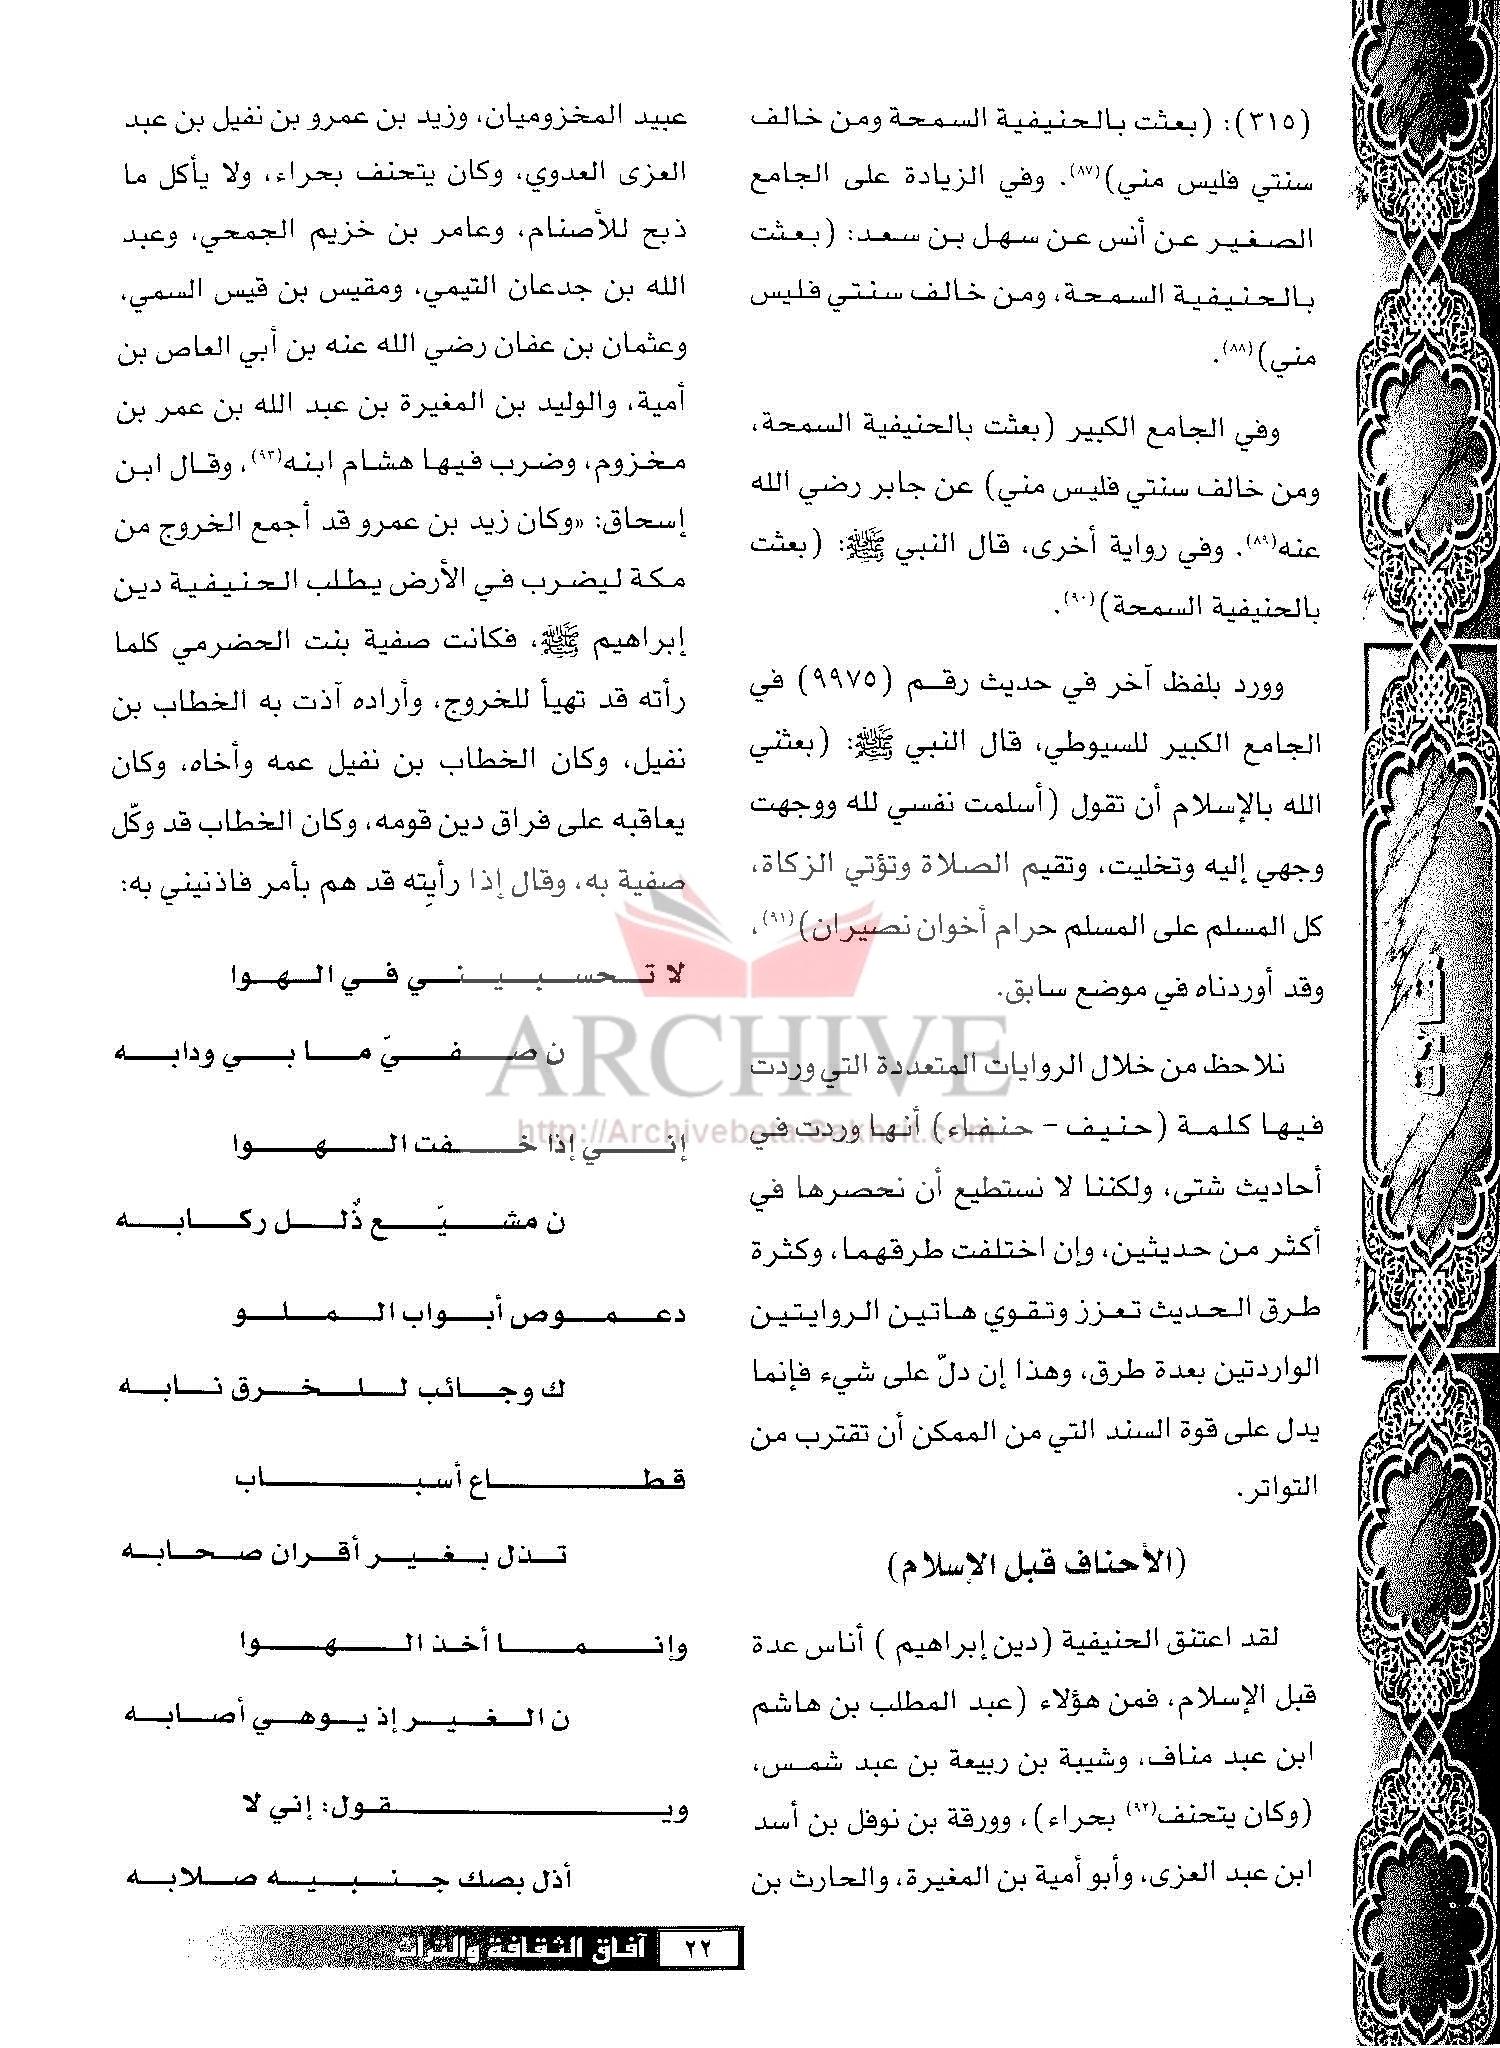 (٣١٥): (بعثت بالحنيفية السمحة ومن خالف
سنتي فليس مني)(٨٧). وفي الزيادة على الجامع
الصغير عن أنس عن سهل بن سعد: (بعثت
بالحنيفية السمحة، ومن خالف سنتي فليس
مني)(٨٨).
وفي الجامع الكبير (بعثت بالحنيفية السمحة،
ومن خالف سنتي فليس مني) عن جابر رضي الله
عنه(٨٩). وفي رواية أخرى، قال النبي ﷺ: (بعثت
بالحنيفية السمحة)(٩٠).
وورد بلفظ آخر في حديث رقم (٩٩٧٥) في
الجامع الكبير للسيوطي، قال النبي ﷺ: (بعثني
الله بالإسلام أن تقول (أسلمت نفسي لله ووجهت
وجهي إليه وتخليت، وتقيم الصلاة وتؤتي الزكاة،
كل المسلم على المسلم حرام أخوان نصيران)(٩١)،
وقد أوردناه في موضع سابق.
نلاحظ من خلال الروايات المتعددة التي وردت
فيها كلمة (حنيف - حنفاء) أنها وردت في
أحاديث شتى، ولكننا لا نستطيع أن نحصرها في
أكثر من حديثين، وإن اختلفت طرقهما، وكثرة
طرق الحديث تعزز وتقوي هاتين الروايتين
الواردتين بعدة طرق، وهذا إن دلّ على شيء فإنما
يدل على قوة السند التي من الممكن أن تقترب من
التواتر.
(الأحناف قبل الإسلام)
لقد اعتنق الحنيفية (دين إبراهيم ) أناس عدة
قبل الإسلام، فمن هؤلاء (عبد المطلب بن هاشم
ابن عبد مناف، وشيبة بن ربيعة بن عبد شمس،
(وكان يتحنف(٩٢) بحراء)، وورقة بن نوفل بن أسد
ابن عبد العزى، وأبو أمية بن المغيرة، والحارث بن
عبيد المخزوميان، وزيد بن عمرو بن نفيل بن عبد
العزى العدوي، وكان يتحنف بحراء، ولا يأكل ما
ذبح للأصنام، وعامر بن خزيم الجمحي، وعبد
الله بن جدعان التيمي، ومقيس بن قيس السمي،
وعثمان بن عفان رضي الله عنه بن أبي العاص بن
أمية، والوليد بن المغيرة بن عبد الله بن عمر بن
مخزوم، وضرب فيها هشام ابنه(٩٣)، وقال ابن
إسحاق: «وكان زيد بن عمرو قد أجمع الخروج من
مكة ليضرب في الأرض يطلب الحنيفية دين
إبراهيم ﷺ، فكانت صفية بنت الحضرمي كلما
رأته قد تهيأ للخروج، وأراده آذت به الخطاب بن
نفيل، وكان الخطاب بن نفيل عمه وأخاه، وكان
يعاقبه على فراق دين قومه، وكان الخطاب قد وكّل
صفية به، وقال إذا رأيتِه قد هم بأمر فاذنيني به:
لا تحسبيني في الهوا
ن صفيّ ما بي ودابه
إني إذا خفت الهوا
ن مشيّع ذُلل ركابه
دعموص أبواب الملو
ك وجائب للخرق نابه
قطاع أسباب
تذل بغير أقران صحابه
وإنما أخذ الهوا
ن الغير إذ يوهي أصابه
ويقول: إني لا
أذل بصك جنبيه صلابه
مقالات
ARCHIVE
http://Archivebeta.Sakhrit.com
٢٢ آفاق الثقافة والتراث